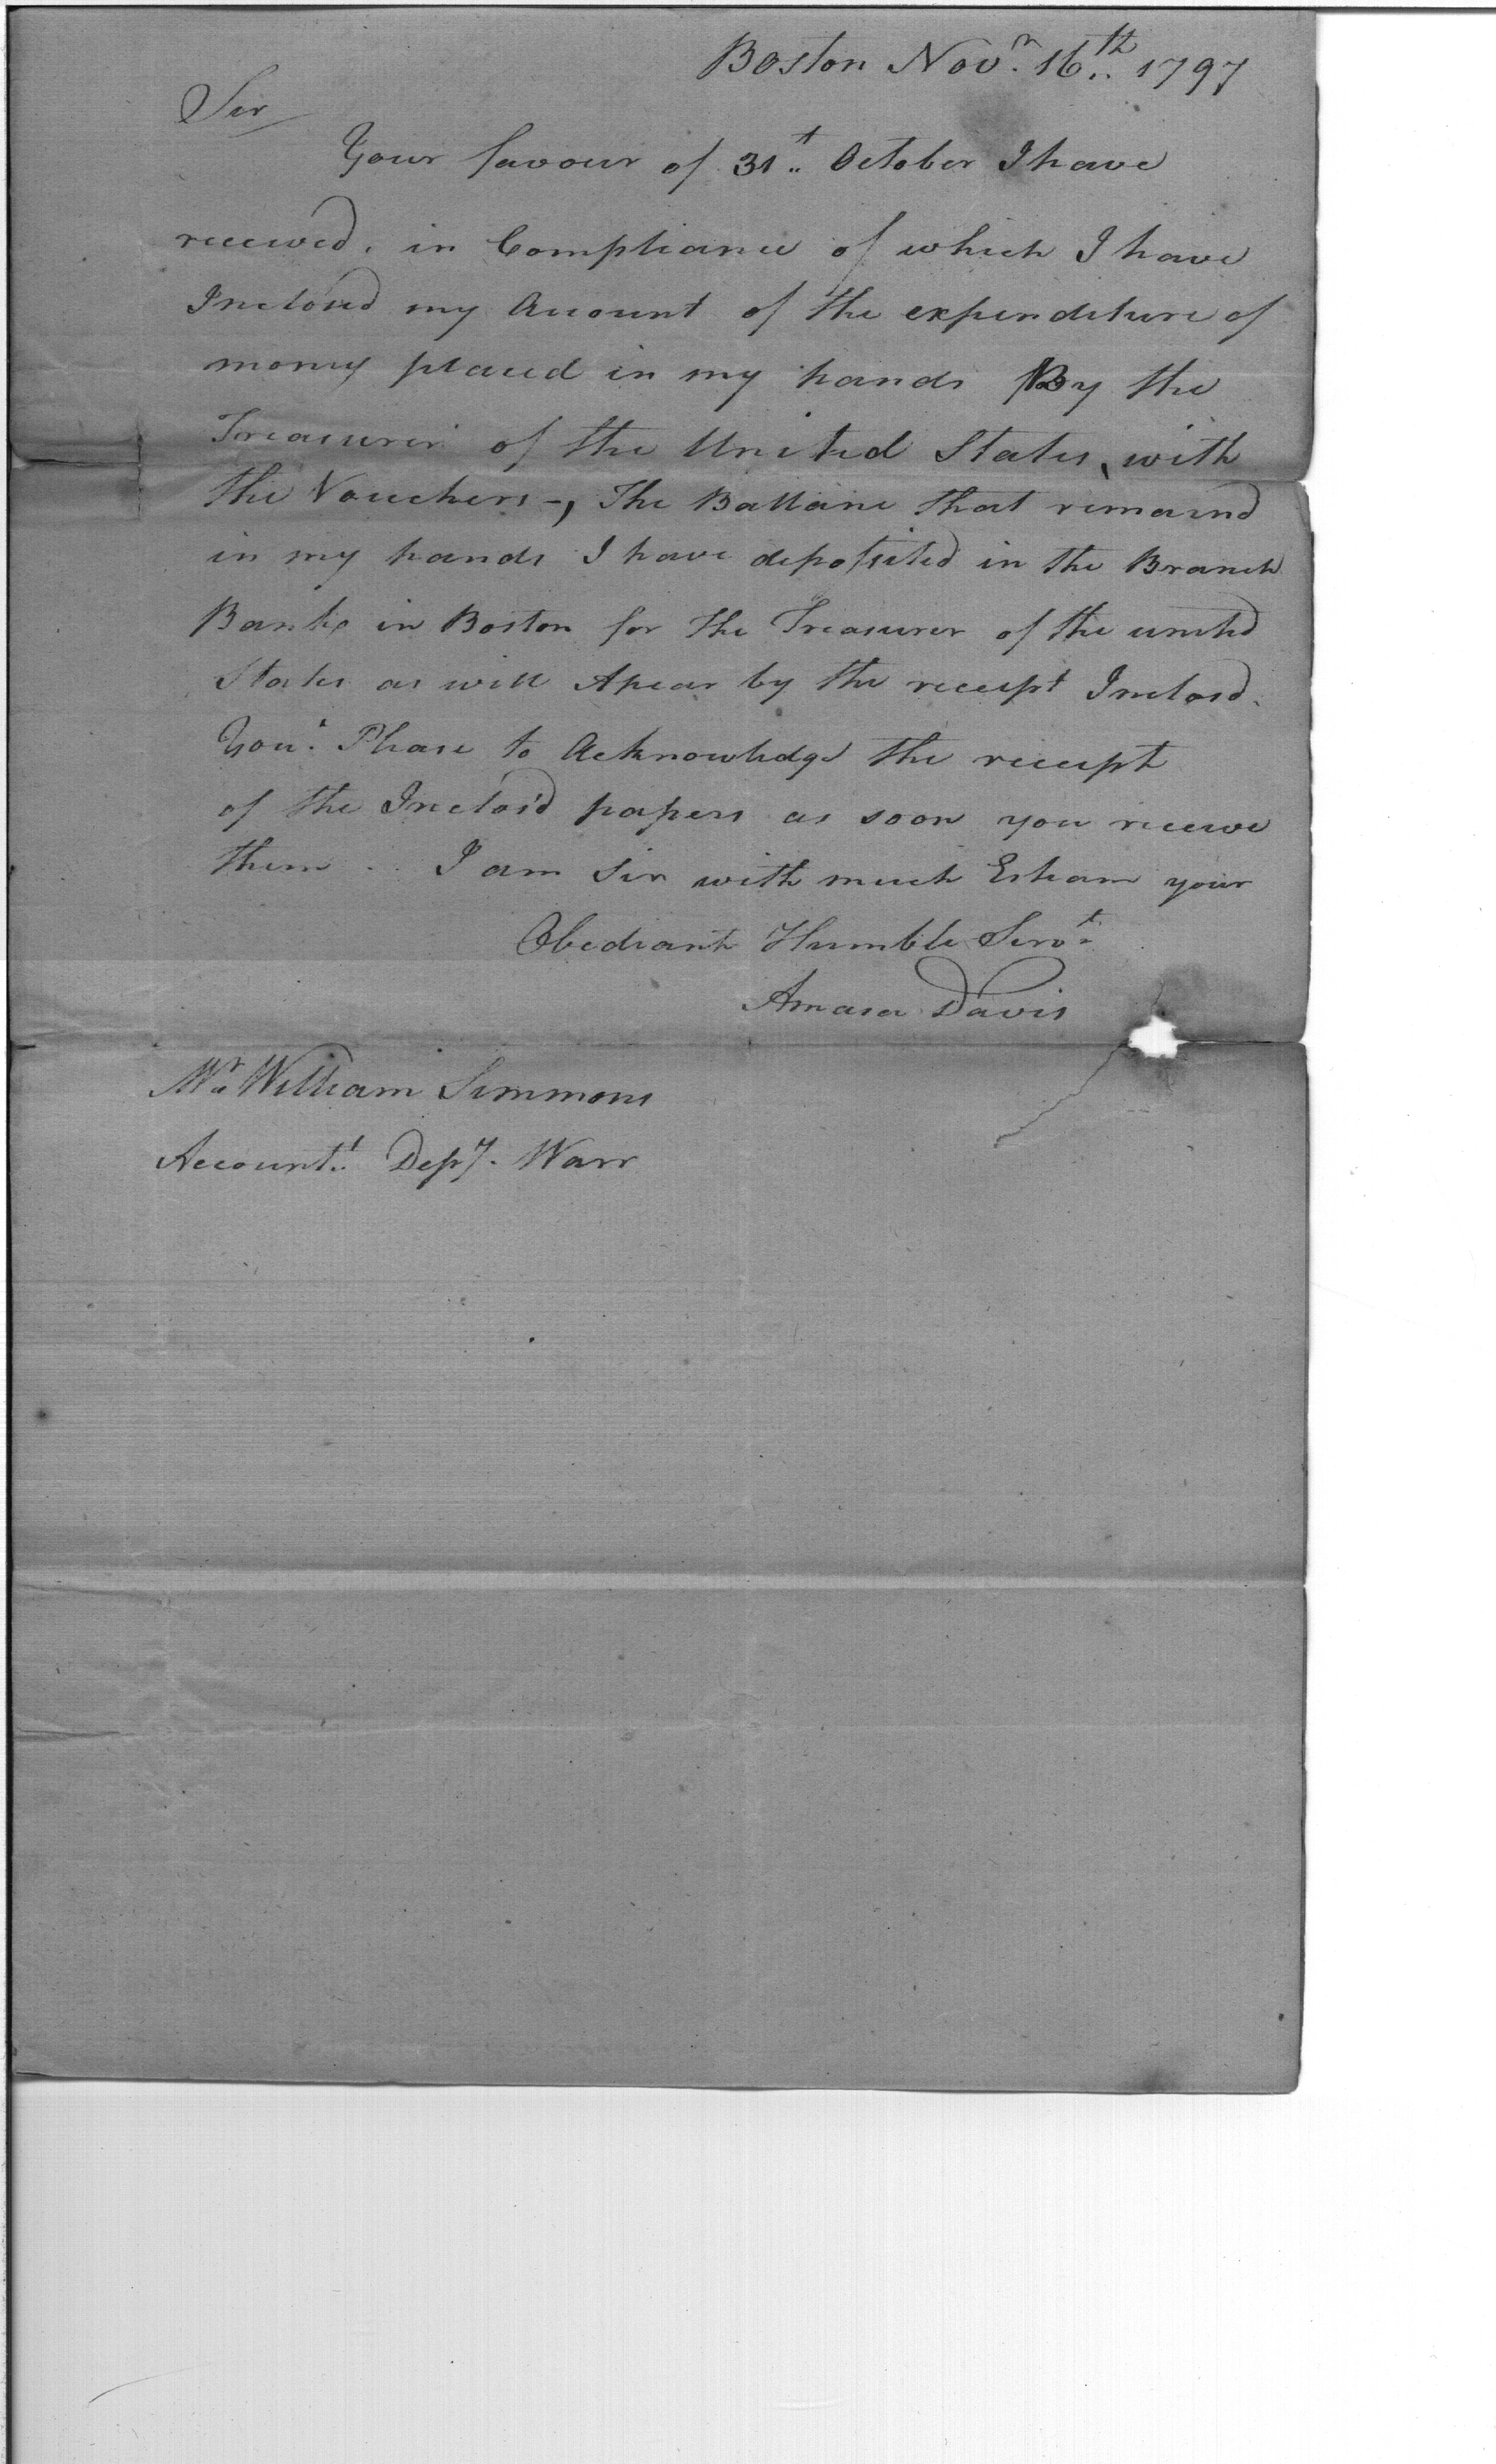 Boston Novr. 16th 1797
Sir
Your favour of 31t October I have
received, in Compliance of which I have
Inclosed my Account of the expenditure of
money placed in my hands By the
Treasurer of the United States, with
the Vouchers -, The Ballance that remaind
in my hands I have deposited in the Branch
Bank in Boston for the Treasurer of the united
States as will Apear by the receipt Inclosd.
You. Please to Acknowledge the receipt
of the Inclos'd papers as soon you receive
them .. I am Sir with much Esteam your
Obediant Humble Servt
Amasa Davis
Mr William Simmons
Accountt. Dept. Warr